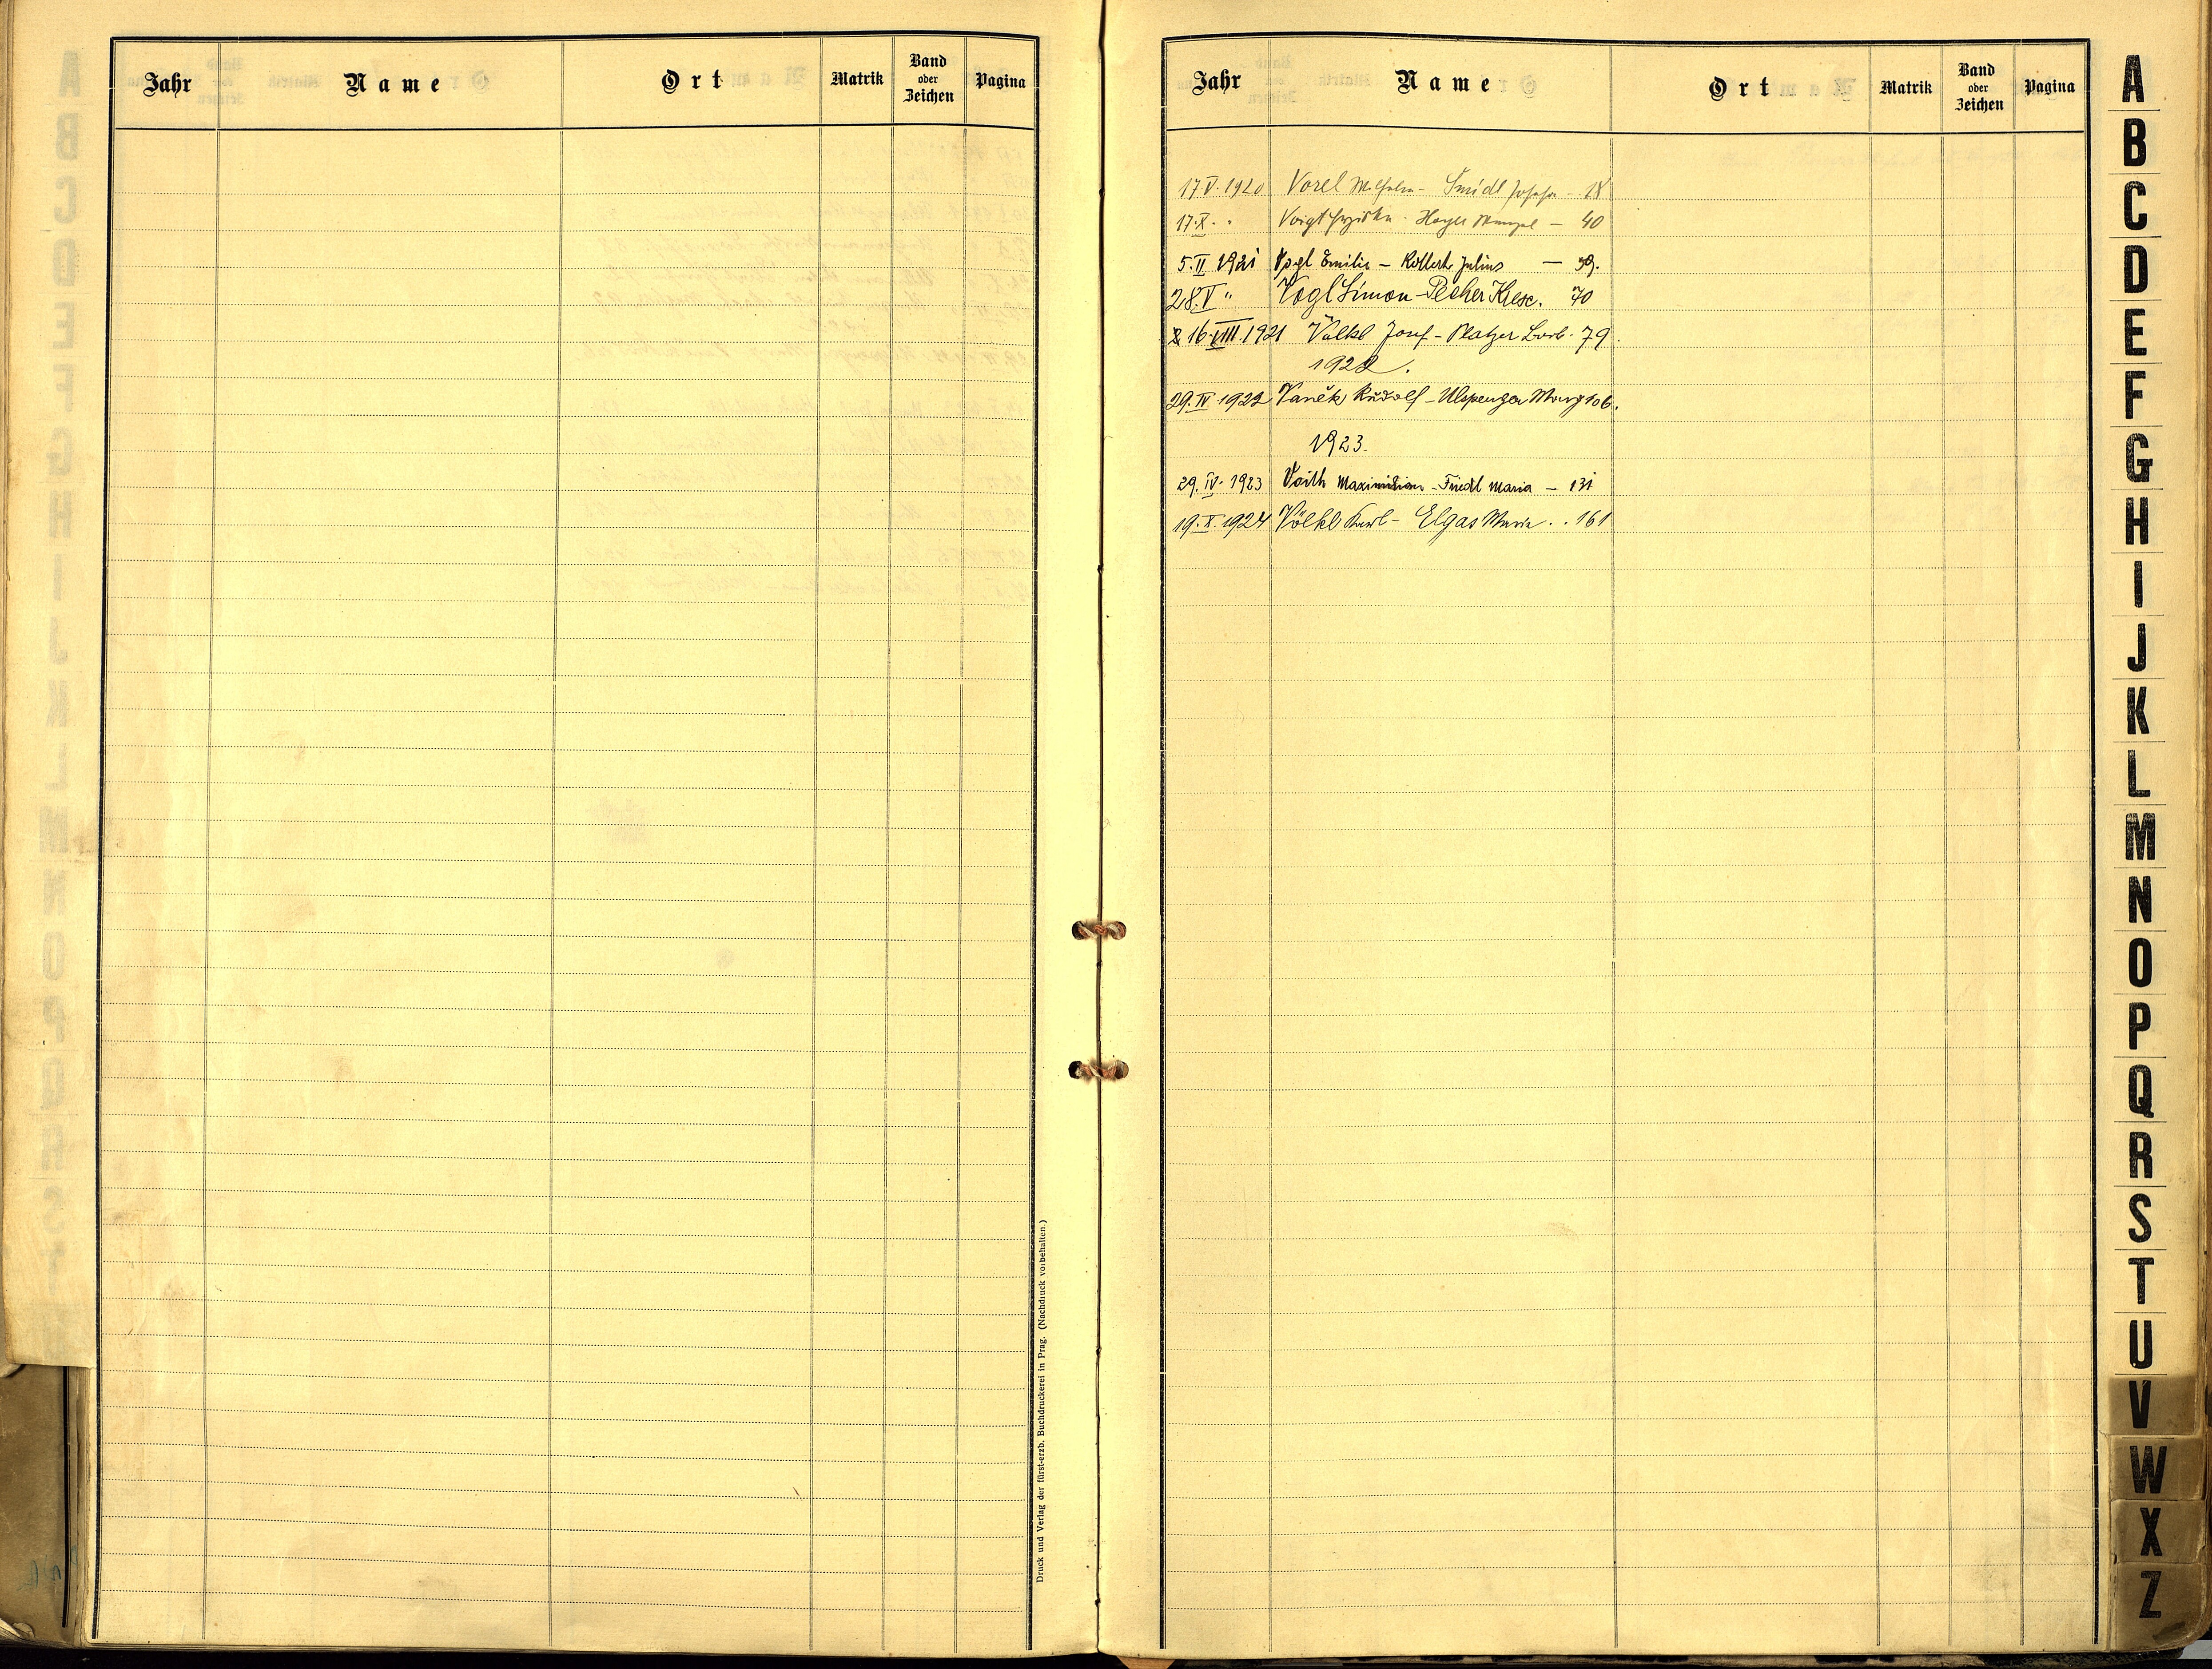 Jahr Name Ort Matrik Band oder Zeichen Pagina
Druck und Verlag der fürst-erzb. Buchdruckerei in Prag. (Nachdruck vorbehalten.)
Jahr Name Ort Matrik Band oder Zeichen Pagina
17.V.1920 Vorel Wilhelm - Smidl Josefa - 18
17.X. " Voigt - Hoyer Wenzel - 40
5.II 1921 Vogl Emilie - Julius -
28.V " Vogl Simon - Pecher Kresc. 70
16.VIII.1921 Völkl Josef - Platzer Barb. 79.
1922.
29.IV 1922 Vaněk Rudolf - Marg 106.
1923.
29.IV. 1923 Voith Maximilian - Friedl Maria - 131
19.X.1924 Völkl Karl - Elgas Maria . . 161
A
B
C
D
E
F
G
H
I
J
K
L
M
N
O
P
Q
R
S
T
U
V
W
X
Z